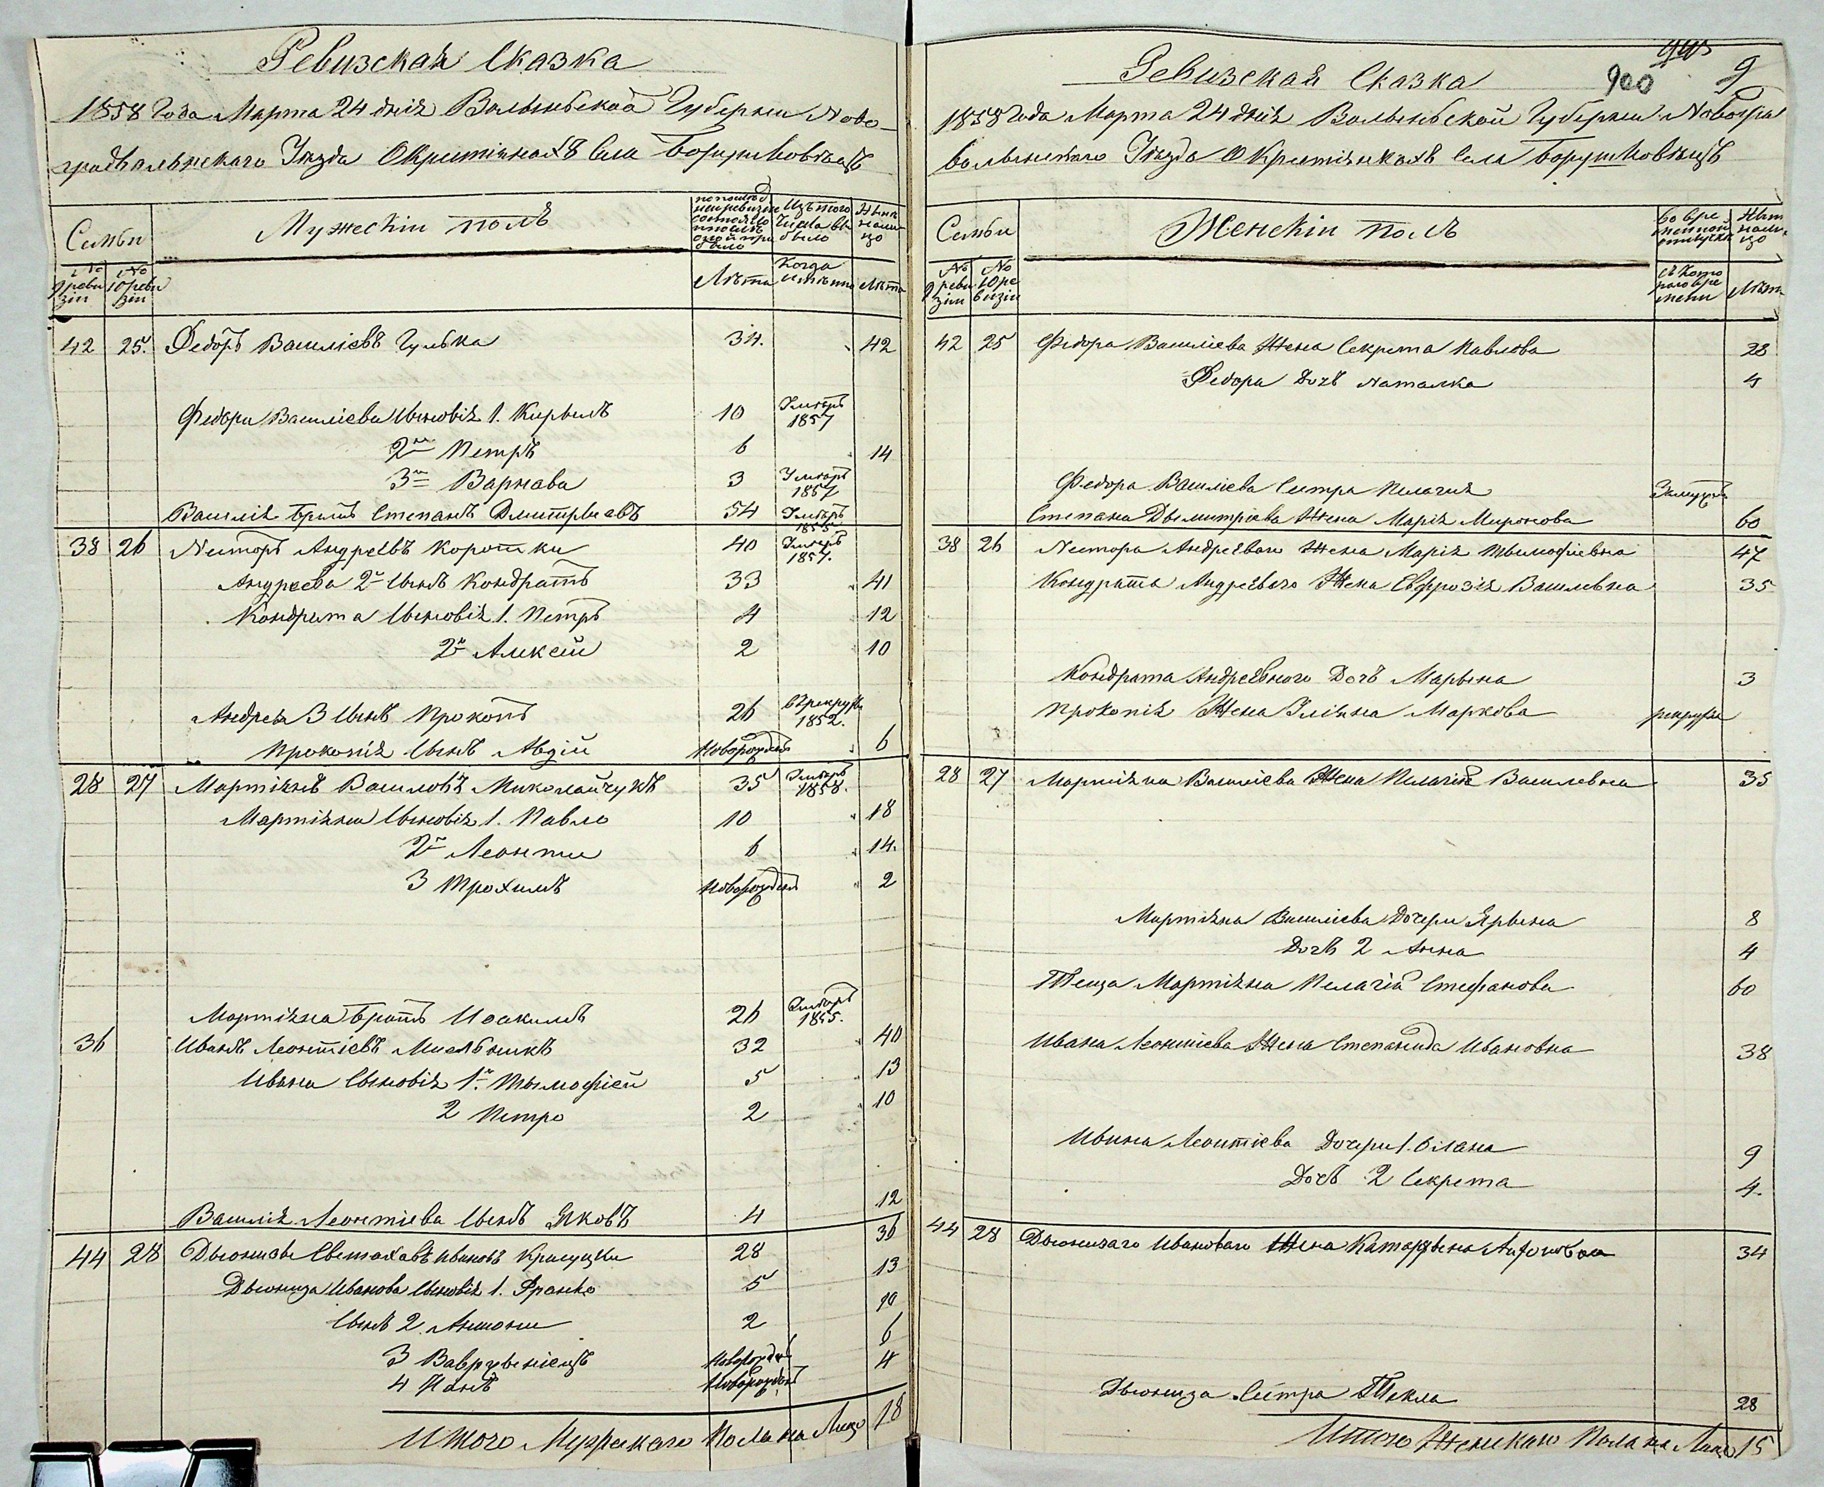 Ревизская Сказка
1858 Года Марта 24 дня Волынской Губернии Ново-
градволынскаго Уезда О Крестянахъ Села Борушковъцъ
Семьи
Мужескій полъ
Изъ того числа выбыло
Ныне налицо
№ 9 реви зіи
№ 10 реви зіи
Лѣта
Когда именно
Лѣта
42 25. Федоръ Василіевъ Гулька 34. 42
Федора Василіева Сыновія 1. Кирылъ 10 Умеръ 1857
2й Петръ 6 14
3й Варнава 3 Умеръ 1857
Василія братъ Степанъ Дмитріевъ 54 Умеръ 1855
38 26 Несторъ Андреевъ Коротки 40 Умеръ 1857.
Андреева 2й Сынъ Кондратъ 33 41
Кондрата Сыновія 1. Петръ 4 12
2й Алексей 2 10
Андрея 3 Сынъ Прокопъ 26 въ рекруты 1852.
Прокопія Сынъ Авдій Новорожденъ 6
28 27 Мартінъ Василовъ Миколайчукъ 35 Умеръ 1858.
Мартіяна Сыновія 1. Павло 10 18
2й Леонти 6 14.
3 Трохимъ Новорожденъ 2
Мартіяна братъ Иоакимъ 26 Умеръ 1855.
36 Иванъ Леонтіевъ Мисльникъ 32 40
Ивана Сыновія 1й Тымофіей 5 13
2 Петро 2 10
Василія Леонтіева Сынъ Яковъ 4 12
44 28 Дыонизы Ивановъ 28 36
Дыониза Иванова Сыновія 1. Франко 5 13
Сынъ 2. Антони 2 10
3 Вавржыніецъ Новорожденъ 6
4 Янъ Новорожденъ 4
Итого Мужескаго Пола на Лицо 18
900 9
Ревизская Сказка
1858 Года Марта 24 дня Волынской Губернии Новогра
волынскаго Уезда О Крестянахъ Села Борушковъцъ
Семьи
Женскій полъ
Во временной отлучке
Ныне налицо
№ 9 реви зіи
№ 10 ре визіи
Съ кото раго вре мени
Лѣта
42 25 Федора Василіева Жена Секрета Павлова 28
Федора Дочъ Наталка 4
Федора Василіева Сестра Пелагия Замужъ
Степана Дымитріева Жена Марія Миронова 60
38 26 Нестора Андреевого Жена Марія Тымофіевна 47
Кондрата Андреевого Жена Евфрозія Василевна 35
Кондрата Андреевного Дочъ Марына 3
Прокопія Жена Уліяна Маркова рекрутъ
28 27 Мартіяна Василіева Жена Пелагія Василевна 35
Мартіяна Василіева Дочери Ярына 8
Дочъ 2 Анна 4
Теща Мартіяна Пелагія Стефанова 60
Ивана Леонтіева Жена Степанида Ивановна 38
Ивана Леонтіева Дочери 1. Олана 9
Дочъ 2 Секрета 4.
44 28 Дыонизаго Иванового Жена Катаржына 34
Дыониза Сестра Текла 28
Итого Женскаго Пола на Лицо 15